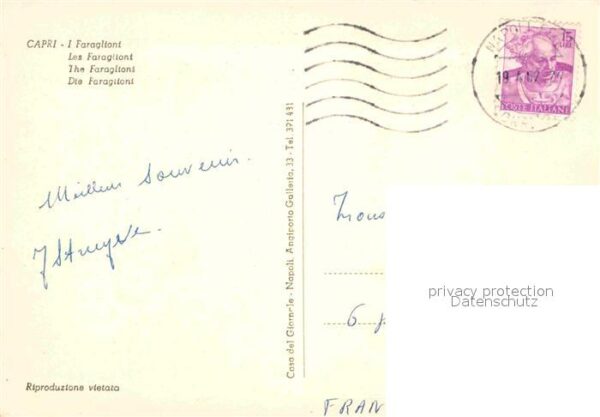 CAPRI - I Faraglioni
Les Faraglioni
The Faraglioni
Die Faraglioni
NAPOLI
15
LIRE
POSTE ITALIANE
Casa del Giornale - Napoli, Angiporto Galleria, 33 - Tel. 391 431
Meilleur Souvenir.
privacy protection
Datenschutz
6
FRAN
Riproduzione vietata